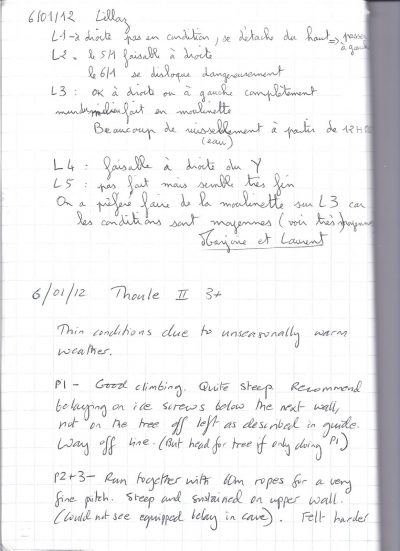 6/01/12 Lillaz
L1 - à droite pas en condition, se détache du haut => passer à gauche
L2 - le 5/1 faisable à droite
le 6/1 se disloque dangereusement
L3 : ok à droite ou à gauche complètement
fait en moulinette
Beaucoup de ruissellement à partir de 12H
(eau)
L4 : faisable à droite du Y
L5 : pas fait mais semble très fin
On a préféré faire de la moulinette sur L3 car
les conditions sont moyennes (voir très moyennes
Marjorie et Laurent
6/01/12 Thoule II 3+
Thin conditions due to unseasonally warm
weather.
P1 - Good climbing. Quite steep. Recommend
belaying on ice screws below the next wall,
not on the tree off left as described in guide.
Way off line. (But head for tree if only doing P1)
P2+3 - Run together with 60m ropes for a very
fine pitch. Steep and sustained on upper wall.
(Could not see equipped belay in cave). Felt harder